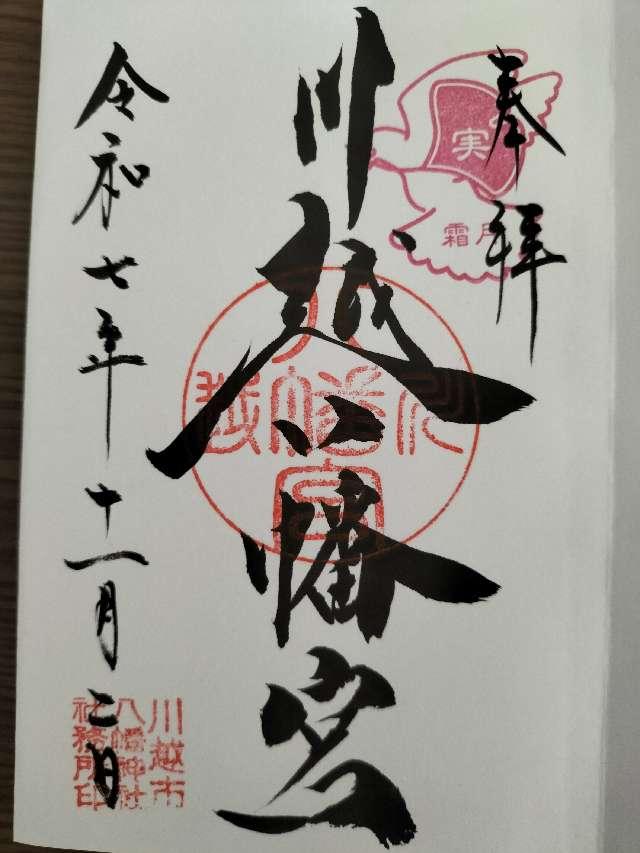 奉拝
実
霜月
川越八幡宮
川越
八幡宮
令和七年十一月二日
川越市
八幡神社
社務所印